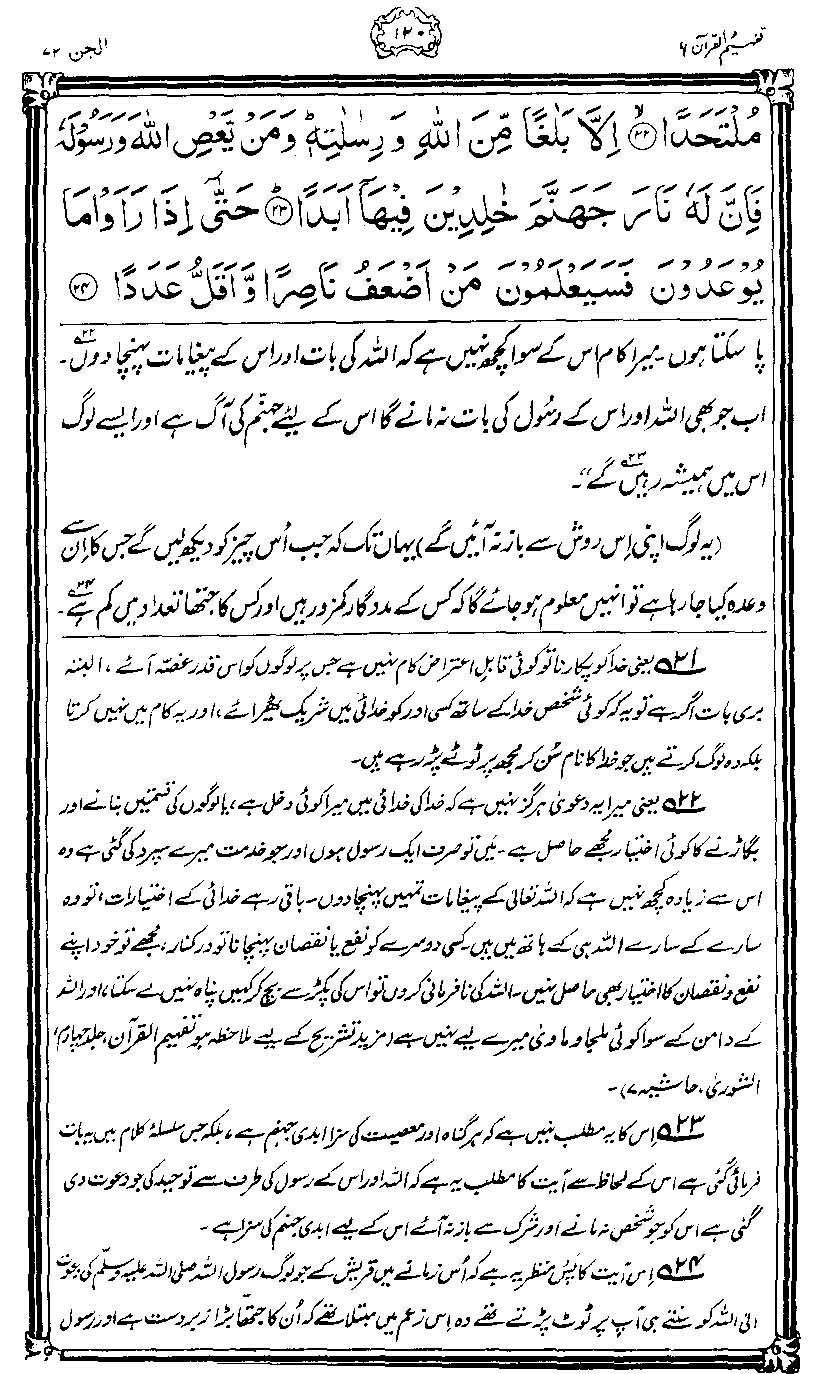 تفہیم القرآن ۶
۱۲۰
الجن ۷۲
مُلْتَحَدًا ﴿۲۲﴾ اِلَّا بَلٰغًا مِّنَ اللّٰهِ وَ رِسٰلٰتِهٖ ؕ وَ مَنْ يَّعْصِ اللّٰهَ وَ رَسُوْلَهٗ
فَاِنَّ لَهٗ نَارَ جَهَنَّمَ خٰلِدِيْنَ فِيْهَاۤ اَبَدًا ﴿۲۳﴾ؕ حَتّٰۤى اِذَا رَاَوْا مَا
يُوْعَدُوْنَ فَسَيَعْلَمُوْنَ مَنْ اَضْعَفُ نَاصِرًا وَّ اَقَلُّ عَدَدًا ﴿۲۴﴾
پا سکتا ہوں۔ میرا کام اس کے سوا کچھ نہیں ہے کہ اللہ کی بات اور اس کے پیغامات پہنچا دوں۲۲؎۔
اب جو بھی اللہ اور اس کے رسُول کی بات نہ مانے گا اس کے لیٔے جہنّم کی آگ ہے اور ایسے لوگ
اس میں ہمیشہ رہیں گے۲۳؎“۔
(یہ لوگ اپنی اِس روش سے باز نہ آئیں گے) یہاں تک کہ جب اُس چیز کو دیکھ لیں گے جس کا اِن سے
وعدہ کیا جا رہا ہے تو انہیں معلوم ہو جائے گا کہ کس کے مددگار کمزور ہیں اور کس کا جتھا تعداد میں کم ہے۲۴؎۔
۲۱؎ یعنی خدا کو پکارنا تو کوئی قابلِ اعتراض کام نہیں ہے جس پر لوگوں کو اس قدر غصّہ آئے، البتہ
بری بات اگر ہے تو یہ کہ کوئی شخص خدا کے ساتھ کسی اور کو خدائی میں شریک ٹھیرائے، اور یہ کام میں نہیں کرتا
بلکہ وہ لوگ کرتے ہیں جو خدا کا نام سُن کر مجھ پر ٹوٹے پڑ رہے ہیں۔
۲۲؎ یعنی میرا یہ دعویٰ ہرگز نہیں ہے کہ خدا کی خدائی میں میرا کوئی دخل ہے، یا لوگوں کی قسمتیں بنانے اور
بگاڑنے کا کوئی اختیار مجھے حاصل ہے۔ میں تو صرف ایک رسول ہوں اور جو خدمت میرے سپرد کی گئی ہے وہ
اس سے زیادہ کچھ نہیں ہے کہ اللہ تعالیٰ کے پیغامات تمہیں پہنچا دوں۔ باقی رہے خدائی کے اختیارات، تو وہ
سارے کے سارے اللہ ہی کے ہاتھ میں ہیں۔ کسی دوسرے کو نفع یا نقصان پہنچانا تو درکنار، مجھے تو خود اپنے
نفع و نقصان کا اختیار بھی حاصل نہیں۔ اللہ کی نافرمانی کروں تو اس کی پکڑ سے بچ کر کہیں پناہ نہیں لے سکتا، اور اللہ
کے دامن کے سوا کوئی ملجا و ماویٰ میرے لیے نہیں ہے (مزید تشریح کے لیے ملاحظہ ہو تفہیم القرآن، جلد چہارم،
الشوریٰ، حاشیہ ۷)۔
۲۳؎ اِس کا یہ مطلب نہیں ہے کہ ہر گناہ اور معصیت کی سزا ابدی جہنم ہے، بلکہ جس سلسلۂ کلام میں یہ بات
فرمائی گئی ہے اس کے لحاظ سے آیت کا مطلب یہ ہے کہ اللہ اور اس کے رسول کی طرف سے توحید کی جو دعوت دی
گئی ہے اس کو جو شخص نہ مانے اور شرک سے باز نہ آئے اس کے لیے ابدی جہنم کی سزا ہے۔
۲۴؎ اِس آیت کا پس منظر یہ ہے کہ اُس زمانے میں قریش کے جو لوگ رسول اللہ صلی اللہ علیہ وسلّم کی دعوت
الی اللہ کو سنتے ہی آپ پر ٹوٹ پڑتے تھے وہ اِس زعم میں مبتلا تھے کہ اُن کا جتھّا بڑا زبردست ہے اور رسول